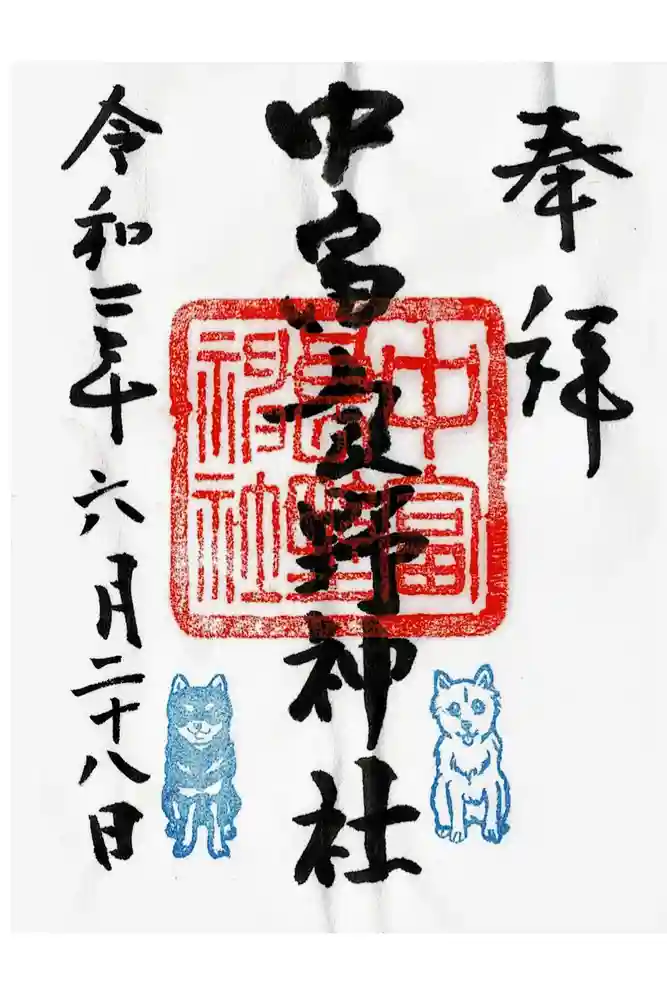 奉拝
中富良野神社
中富
良野
神社
令和三年六月二十八日